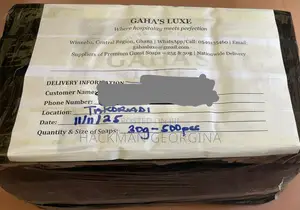 GAHA'S LUXE
Where hospitality meets perfection
Winneba, Central Region, Ghana | WhatsApp/Call:
Suppliers of Premium Hotel Soaps – 25g & 30g | Nationwide Delivery
DELIVERY INFORMATION
Customer Name:
Phone Number:
Location: TAKORADI
Date: 11/11/25
Quantity & Size of Soaps: 30g - 500pcs
HACKMAN GEORGINA